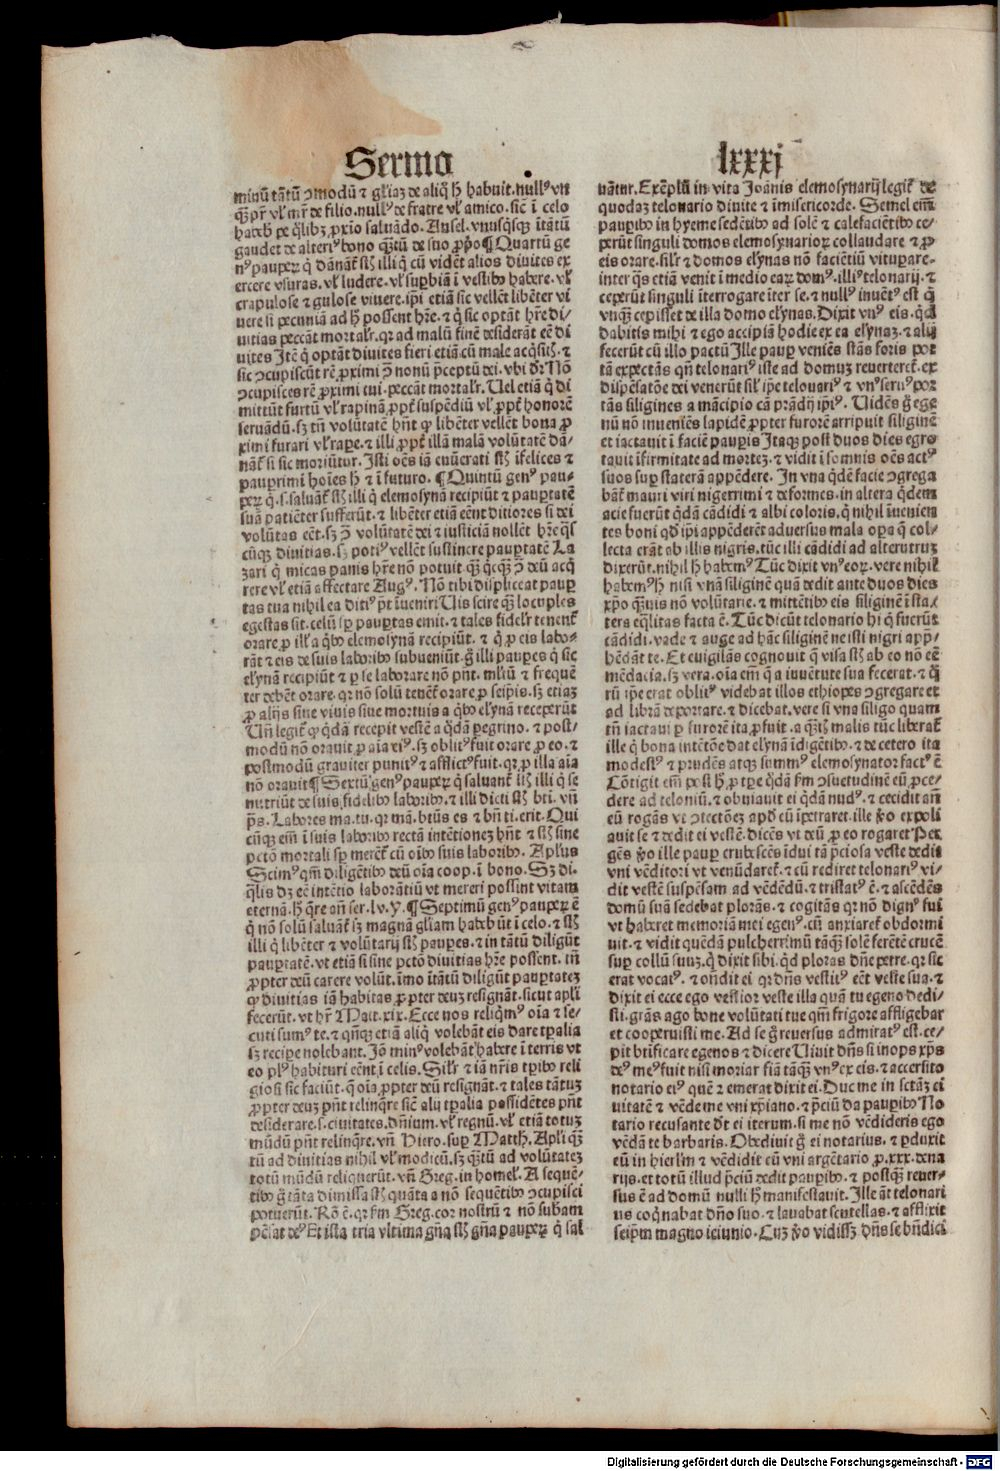 Sermo lxxxj
minū tātū ꝯmodū ⁊ gl̄iaꝫ de aliq̄ h̄ habuit. nullꝰ vn
q̄ꝫ pr̄ vl̓ mr̄ de filio. nullꝰ de fratre vl̓ amico. sic̄ ī celo
habeb̄ de q̄libꝫ ꝓxīo saluādo. Ansel. vnusq̄sqꝫ ītātū
gaudet de alteriꝰ bono q̄ꝫtū de suo ꝓpo ¶ Quartū ge
nꝰ pauperꝝ q̄ dānāt̄ st̄ illi q̄ cū vidēt alios diuites ex
ercere vsuras. vl̓ ludere. vl̓ suꝑbiā ī vestibꝰ habere. vl̓
crapulose ⁊ gulose viuere. ip̄i etiā sic vellēt libēter vi
uere si pecuniā ad h̄ possent hr̄e. ⁊ q̄ sic optāt hr̄e di/
uitias peccāt mortalr̄. qr ad malū finē desiderāt eē di
uites Itē q̄ optāt diuites fieri etiā cū male acq̄sitꝭ. ⁊
sic ꝯcupiscūt rē ꝓximi ꝯ̄ nonū p̄ceptū dei. vbi dr̄. Nō
ꝯcupisces rē ꝓximi tui. peccāt mortalr̄. Uel etiā q̄ di
mittūt furtū vl̓ rapinā ꝓpt̄ suspēdiū vl̓ ꝓpt̄ honorē
seruādū. sꝫ tn̄ volūtatē hn̄t ꝙ libēter vellēt bona ꝓ
ximi furari vl̓ raꝑe. ⁊ illi ꝓpt̄ illā malā volūtatē dā/
nāt̄ si sic moriūtur. Isti oēs iā enūerati st̄ īfelices ⁊
pauprimi hoīes h̄ ⁊ ī futuro. ¶ Quintū genꝰ pau/
perꝝ q̄. s. saluāt̄ st̄ illi q̄ elemosynā recipiūt ⁊ pauꝑtatē
suā patiēter sufferūt. ⁊ libēter etiā eēnt ditiores si dei
volūtas eēt. sꝫ ꝯ̄ volūtatē dei ⁊ iusticiā nollēt hr̄e q̄s
cūqꝫ diuitias. sꝫ potiꝰ vellēt sustinere pauꝑtatē La
zari q̄ micas panis hr̄e nō potuit q̄ꝫ q̄cq̄ꝫ ꝯ̄ deū acq̄
rere vl̓ etiā affectare Augꝰ. Nō tibi displiceat pauꝑ
tas tua nihil ea ditiꝰ pt̄ īueniri Uis scire q̄ꝫ locuples
egestas sit. celū sꝑ pauꝑtas emit. ⁊ tales fidelr̄ tenent̄
orare ꝓ ill̓ a q̄bꝰ elemosynā recipiūt. ⁊ q̄ ꝓ eis labo/
rāt ⁊ eis de suis laboribꝰ subueniūt. g̃ illi pauꝑes q̄ sic
el̓ynā recipiūt ⁊ ꝑ se laborare nō pn̄t. ml̓tū ⁊ frequē
ter debēt orare. qr nō solū tenēt̄ orare ꝓ seip̄is. sꝫ etiaꝫ
ꝓ alijs siue viuis siue mortuis a q̄bꝰ el̓ynā receperūt
Un̄ legit̄ ꝙ q̄dā recepit vestē a q̄dā ꝑegrino. ⁊ post/
modū nō orauit ꝓ aīa eiꝰ. sꝫ oblitꝰ fuit orare ꝓ eo. ⁊
postmodū grauiter punitꝰ ⁊ afflictꝰ fuit. qr ꝓ illa aīa
nō orauit ¶ Sextū genꝰ pauperꝝ q̄ saluant̄ st̄ illi q̄ se
nutriūt de suis fidelibꝰ laboribꝰ. ⁊ illi dicti st̄ bt̄i. vn̄
p̄s. Labores ma. tu. qr mā. btūs es ⁊ bn̄ ti. erit. Qui
cūqꝫ em̄ ī suis laboribꝰ rectā intētionez hn̄t ⁊ st̄ sine
pctō mortali sꝑ merēt̄ cū oībꝰ suis laboribꝰ. Apl̓us
Scimꝰ qm̄ diligētibꝰ deū oīa coop. ī bono. Sꝫ di.
q̄lis dꝫ eē intētio laborātiū vt mereri possint vitam
eternā. h̄ q̄re an̄ ser. lv. Y. ¶ Septimū genꝰ pauperꝝ ē
q̄ nō solū saluāt̄ sꝫ magnā gl̄iam habebūt ī celo. ⁊ st̄
illi q̄ libēter ⁊ volūtarij st̄ pauꝑes. ⁊ in tātū diligūt
pauꝑtatē. vt etiā si sine pctō diuitias hr̄e possent. tn̄
ꝓpter deū carere volūt. īmo ītātū diligūt pauꝑtatez
ꝙ diuitias iā habitas ꝓpter deuꝫ resignāt. sicut apl̓i
fecerūt. vt hr̄ Matt. xix. Ecce nos reliq̄mꝰ oīa ⁊ se/
cuti sumꝰ te. ⁊ qn̄qꝫ etiā aliq̄ volebāt eis dare tꝑalia
sꝫ recipe nolebant. Jō minꝰ volebāt habere ī terris vt
eo plꝰ habituri eēnt ī celis. Sil̓r ⁊ iā nr̄is tꝑibꝰ reli
giosi sic faciūt. q̄ oīa ꝓpter deū resignāt. ⁊ tales tātuꝫ
ꝓpter deuꝫ pn̄t relinq̄re sic̄ alij tꝑalia possidētes pn̄t
desiderare. s. ciuitates. dn̄ium. vl̓ regnū. vl̓ etiā totuꝫ
mūdū pn̄t relinq̄re. vn̄ Hiero. suꝑ Matth. Apl̓i q̄ꝫ
tū ad diuitias nihil vl̓ modicū. sꝫ q̄ꝫtū ad volūtatez
totū mūdū reliquerūt. vn̄ Greg. in homel̓. A sequē/
tibꝰ g̃ tāta dimissa st̄ quāta a nō sequētibꝰ ꝯcupisci
potuerūt. Rō ē. qr fm Greg. cor nostrū ⁊ nō subam
pēsat deꝰ Et ista tria vltima gn̄a st̄ gn̄a pauperꝝ q̄ sal
uātur. Exēplū in vita Joānis elemosynarij legit̄ de
quodaꝫ telonario diuite ⁊ īmisericorde. Semel em̄
pauꝑibꝰ in hyeme sedētibꝰ ad solē ⁊ calefaciētibꝰ ce/
perūt singuli domos elemosynarioꝝ collaudare ⁊ ꝓ
eis orare. sil̓r ⁊ domos el̓ynas nō faciētiū vituꝑare.
inter q̄s etiā venit ī medio eaꝝ domꝰ. illiꝰ telonarij. ⁊
ceperūt singuli īterrogare īter se. ⁊ nullꝰ inuētꝰ est q̄
vnq̄ꝫ cepisset de illa domo el̓ynas. Dixit vnꝰ eis. qd̄
dabitis mihi ⁊ ego accipiā hodie ex ea el̓ynaꝫ. ⁊ alij
fecerūt cū illo pactū Ille pauꝑ veniēs stās foris por
tā expectās qn̄ telonariꝰ iste ad domuꝫ reuerteret̄. ex
dispēsatōe dei venerūt sil̓ ip̄e telonariꝰ ⁊ vnꝰ seruꝰ por
tās siligines a mācipio cā prādij ip̄iꝰ. Uidēs g̃ ege
nū nō inueniēs lapidē ꝓpter furorē arripuit siliginē
et iactauit ī faciē pauꝑis Itaqꝫ post duos dies egro
tauit īfirmitate ad morteꝫ. ⁊ vidit ī somnis oēs actꝰ
suos suꝑ staterā appēdere. In vna q̄dē facie ꝯgrega
bāt̄ mauri viri nigerrimi ⁊ deformes. in altera q̄dem
acie fuerūt q̄dā cādidi ⁊ albi coloris. q̄ nihil īuenien
tes boni qd̄ ip̄i appēderēt aduersus mala oꝑa q̄ col/
lecta erāt ab illis nigris. tūc illi cādidi ad alterutruꝫ
dixerūt. nihil h̄ habemꝰ Tūc dixit vnꝰ eoꝝ. vere nihil
habemꝰ h̄ nisi vnā siliginē quā dedit ante duos dies
xp̄o q̄ꝫuis nō volūtarie. ⁊ mittētibꝰ eis siliginē ī sta/
terā eq̄litas facta ē. Tūc dicūt telonario hi q̄ fuerūt
cādidi. vade ⁊ auge ad hāc siliginē ne isti nigri app̄/
hēdāt te. Et euigilās cognouit q̄ visa st̄ ab eo nō eē
mēdacia. sꝫ vera. oīa em̄ q̄ a iuuētute sua fecerat. ⁊ q̄
rū ip̄e erat oblitꝰ videbat illos ethiopes ꝯgregare et
ad librā deportare. ⁊ dicebat. vere si vna siligo quam
tn̄ iactaui ꝑ furorē ita ꝓfuit. a q̄ꝫtꝭ malis tūc liberat̄
ille q̄ bona intētōe dat el̓ynā īdigētibꝰ. ⁊ de cetero ita
modestꝰ ⁊ prudēs atqꝫ summꝰ elemosynator factꝰ ē
Cōtigit em̄ post h̄ ꝓ tꝑe q̄dā fm ꝯsuetudinē eū ꝓce/
dere ad teloniū. ⁊ obuiauit ei q̄dā nudꝰ. ⁊ cecidit an̄
eū rogās vt ꝯtectōeꝫ apd̄ eū īpetraret. ille ꝟo expoli
auit se ⁊ dedit ei vestē. dicēs vt deū ꝓ eo rogaret Per
gēs ꝟo ille pauꝑ erubescēs īdui tā p̄ciosa veste dedit
vni vēditori vt venūdaret̄. ⁊ cū rediret telonariꝰ vi/
dit vestē suspēsam ad vēdēdū. ⁊ tristatꝰ ē. ⁊ ascēdēs
domū suā sedebat plorās. ⁊ cogitās qr nō dignꝰ fui
vt haberet memoriā mei egenꝰ. cū anxiaret̄ obdormi
uit. ⁊ vidit quēdā pulcherrimū tāq̄ꝫ solē ferētē crucē
suꝑ collū suuꝫ. q̄ dixit sibi. qd̄ ploras dn̄e petre. qr sic
erat vocatꝰ. ⁊ on̄dit ei qr dn̄s vestitꝰ eēt veste sua. ⁊
dixit ei ecce ego vestior veste illa quā tu egeno dedi/
sti. grās ago bone volūtati tue qm̄ frigore affligebar
et cooꝑuisti me. Ad se g̃ reuersus admiratꝰ est. ce/
pit btīficare egenos ⁊ dicere Uiuit dn̄s si inops xp̄s
deꝰ meꝰ fuit nisi moriar fiā tāq̄ꝫ vnꝰ ex eis. ⁊ accersito
notario eiꝰ quē ⁊ emerat dixit ei. Duc me in sctāꝫ ci
uitatē ⁊ vēde me vni xp̄iano. ⁊ p̄ciū da pauꝑibꝰ No
tario recusante dr̄t ei iterum. si me nō vēdideris ego
vēdā te barbaris. Obediuit g̃ ei notarius. ⁊ ꝑduxit
eū in hierl̓m ⁊ vēdidit eū vni argētario ꝓ. xxx. dena
rijs. et totū illud p̄ciū dedit pauꝑibꝰ. ⁊ postq̄ꝫ reuer/
sus ē ad domū nulli h̄ manifestauit. Ille āt telonari
us coq̄nabat dn̄o suo. ⁊ lauabat scutellas. ⁊ afflixit
seip̄m magno ieiunio. Cuꝫ ꝟo vidissꝫ dn̄s se bn̄dici
Digitalisierung gefördert durch die Deutsche Forschungsgemeinschaft - DFG